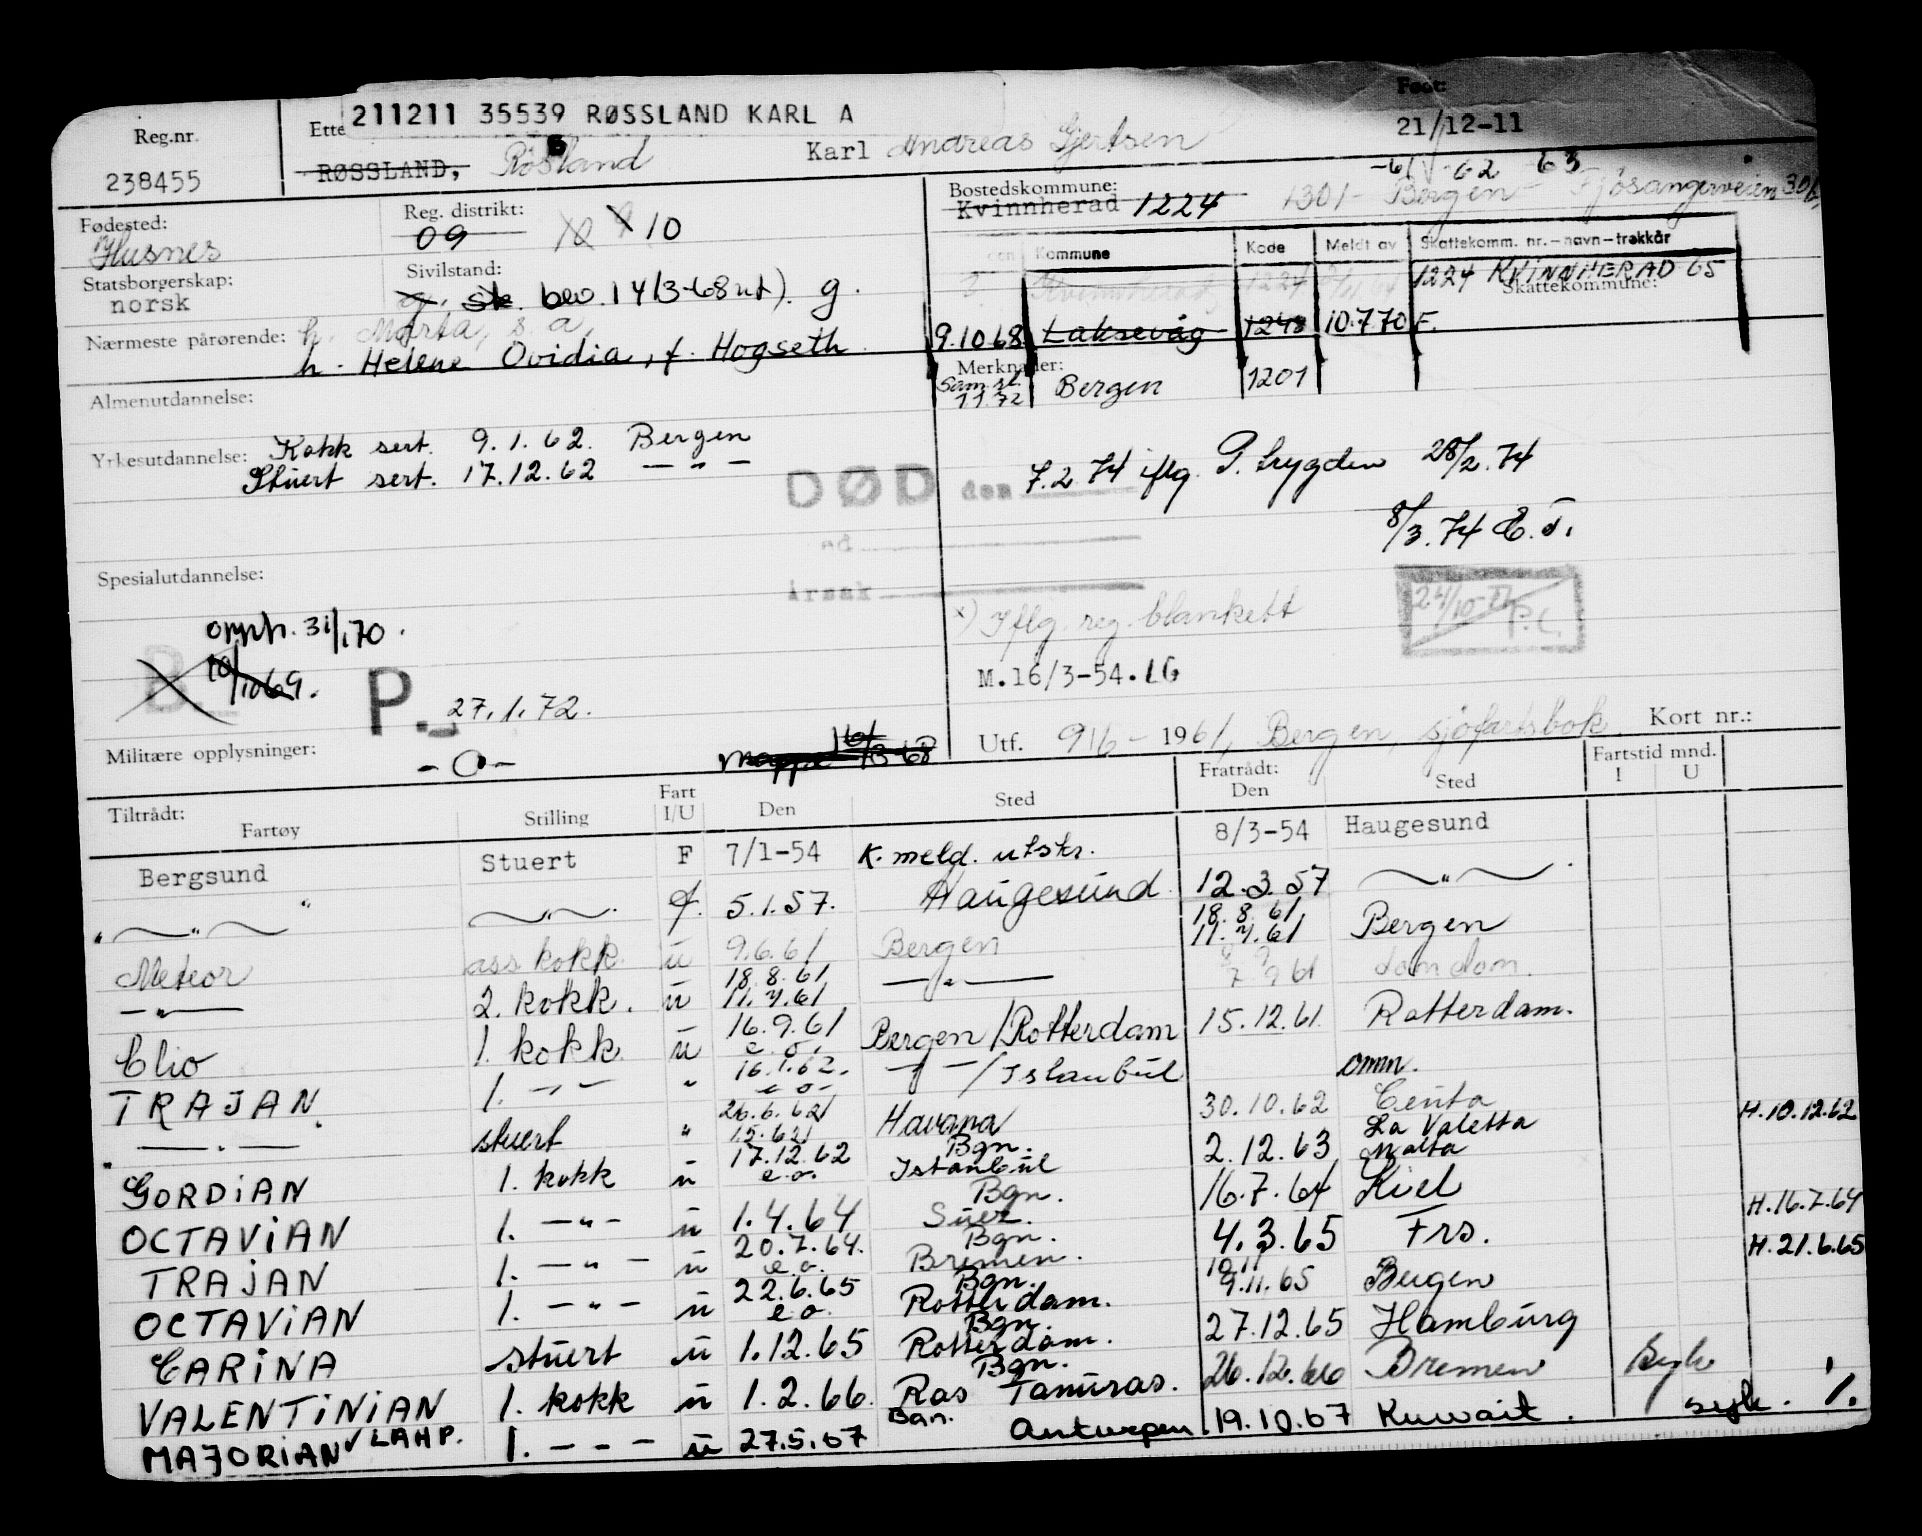 211211 35539 RØSSLAND KARL A
Reg.nr.
Født:
21/12-11
238455
RØSSLAND, Røsland Karl Andreas Gjertsen
-61 -62 -63
Bostedskommune:
Kvinnherad 1224 1301- Bergen - Fjøsangerveien 30b
Fødested:
Husnes
Reg. distrikt:
09 10
Kommune Kode Meldt av Skattekomm. nr.-navn-trekkår
Kvinnherad 1224 1224 KVINNHERAD 65
Skattekommune:
Statsborgerskap:
norsk
Sivilstand:
g. sk. bev. 14/3-68 ut). g.
9.10.68 Laksevåg 1248 10.7.70 F.
Nærmeste pårørende: h. Marta, s.a.
h. Helene Ovidia, f. Hogseth
Merknader:
11.72 Bergen 1201
Almenutdannelse:
Yrkesutdannelse: Kokk sert. 9.1.62. Bergen
Stuert sert. 17.12.62 — " —
DØD den
7.2.74 iflg. P. trygden 28/2.74
ed
8/3.74 E.T.
Årsak
Spesialutdannelse:
x) Iflg. reg. blankett
24/10-
P.L.
opph. 31/1 70.
B. 10/10 69.
P. 27.1.72.
M.16/3-54.IG
Militære opplysninger:
-o-
Mappe 14/3-68
Utf. 9/6- 1961, Bergen, sjøfartsbok Kort nr.:
Tiltrådt:
Fartøy Stilling Fart I/U Den Sted Fratrådt: Den Sted Fartstid mnd. I U
Bergsund Stuert F 7/1-54 K. meld. utskr. 8/3-54 Haugesund
— " — — " — f. 5.1.57. Haugesund 12.3.57 — " —
Meteor ass kokk u 9.6.61 Bergen 18.8.61 11.7.61 Bergen
— " — 2. kokk. u 18.8.61 11.7.61 — " — 61
Clio 1. kokk u 16.9.61 e.o. Bergen/Rotterdam 15.12.61 Rotterdam.
TRAJAN 1. — " — " 16.1.62. e.o. — " — /Istanbul omm.
— " — stuert " 26.6.62 Havana 30.10.62 Ceuta H.10.12.62
GORDiAN 1. kokk u 17.12.62 e.o. Bgn. Istanbul 2.12.63 La Valetta Malta
OCTAViAN 1. — " — u 1.4.64 Bgn. Suez. 16.7.64 Kiel H.16.7.64
TRAJAN 1. — " — u 20.7.64. e.o. Bgn. Bremen. 4.3.65 Frs. H.21.6.65
OCTAViAN 1. — " — u 22.6.65 e.o. Bgn. Rotterdam. 10.11 9.11.65 Bergen
CARiNA stuert u 1.12.65 Bgn. Rotterdam. 27.12.65 Hamburg
VALENTiNiAN 1. kokk u 1.2.66. Bgn. Ras Tanuras. 26.12.66 Bremen Syk
MAJORiAN v LAHP. 1. — " — u 27.5.67 Bgn. Antwerpen 19.10.67 Kuwait. syk. %.